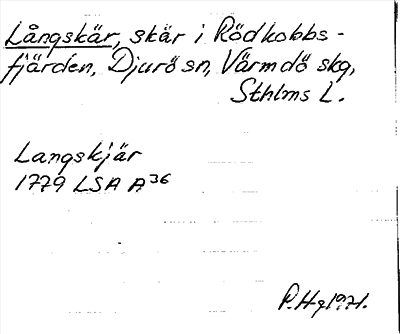 Långskär, skär i Rödkobbs-
fjärden, Djurö sn, Värmdö skg,
Sthlms L.
Langskjär
1779 LSA A36
P.Hg 1971.